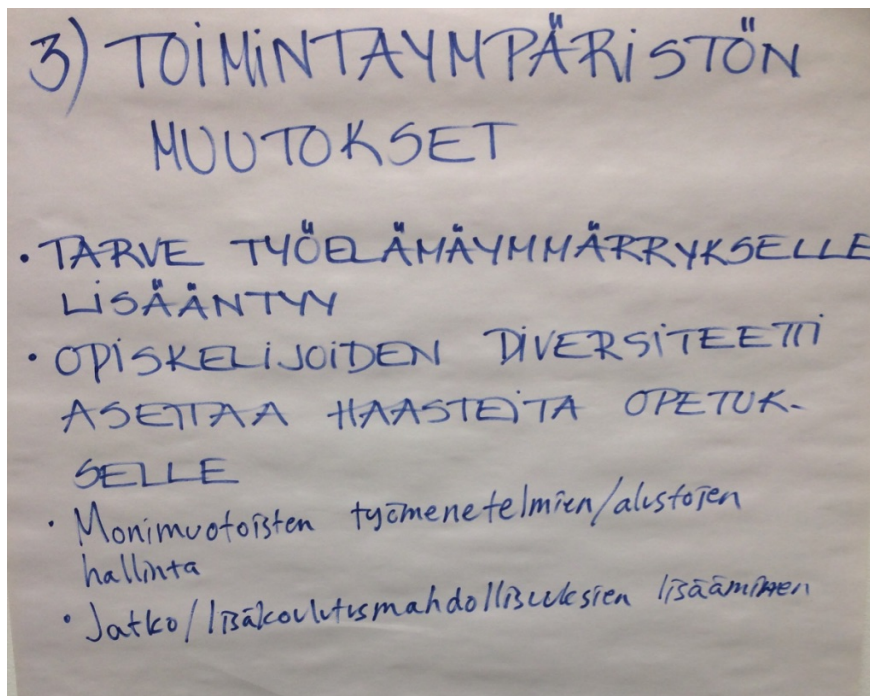 3) TOIMINTAYMPÄRISTÖN
MUUTOKSET
• TARVE TYÖELÄMÄYMMÄRRYKSELLE
LISÄÄNTYY
• OPISKELIJOIDEN DIVERSITEETTI
ASETTAA HAASTEITA OPETUK-
SELLE
• Monimuotoisten työmenetelmien/alustojen
hallinta
• Jatko/lisäkoulutusmahdollisuuksien lisääminen